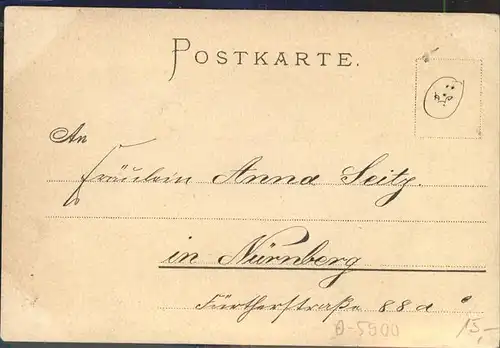 POSTKARTE.
An
Fräulein Anna Seitz.
in Nürnberg
Fürtherstraße 88a
D-5500
15,-